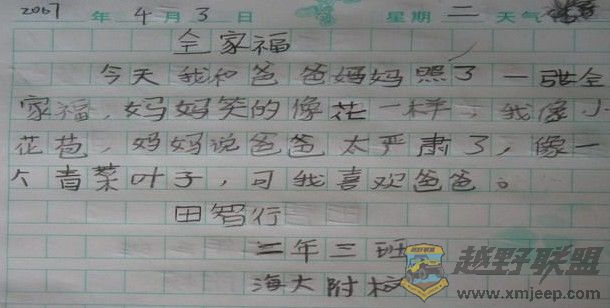 2007 年 4 月 3 日 星期 二 天气
全家福
今天我和爸爸妈妈照了一张全
家福，妈妈笑的像花一样，我像小
花苞，妈妈说爸爸太严肃了，像一
个青菜叶子，可我喜欢爸爸。
田智行
二年三班
海大附校
越野联盟
www.xmjeep.com